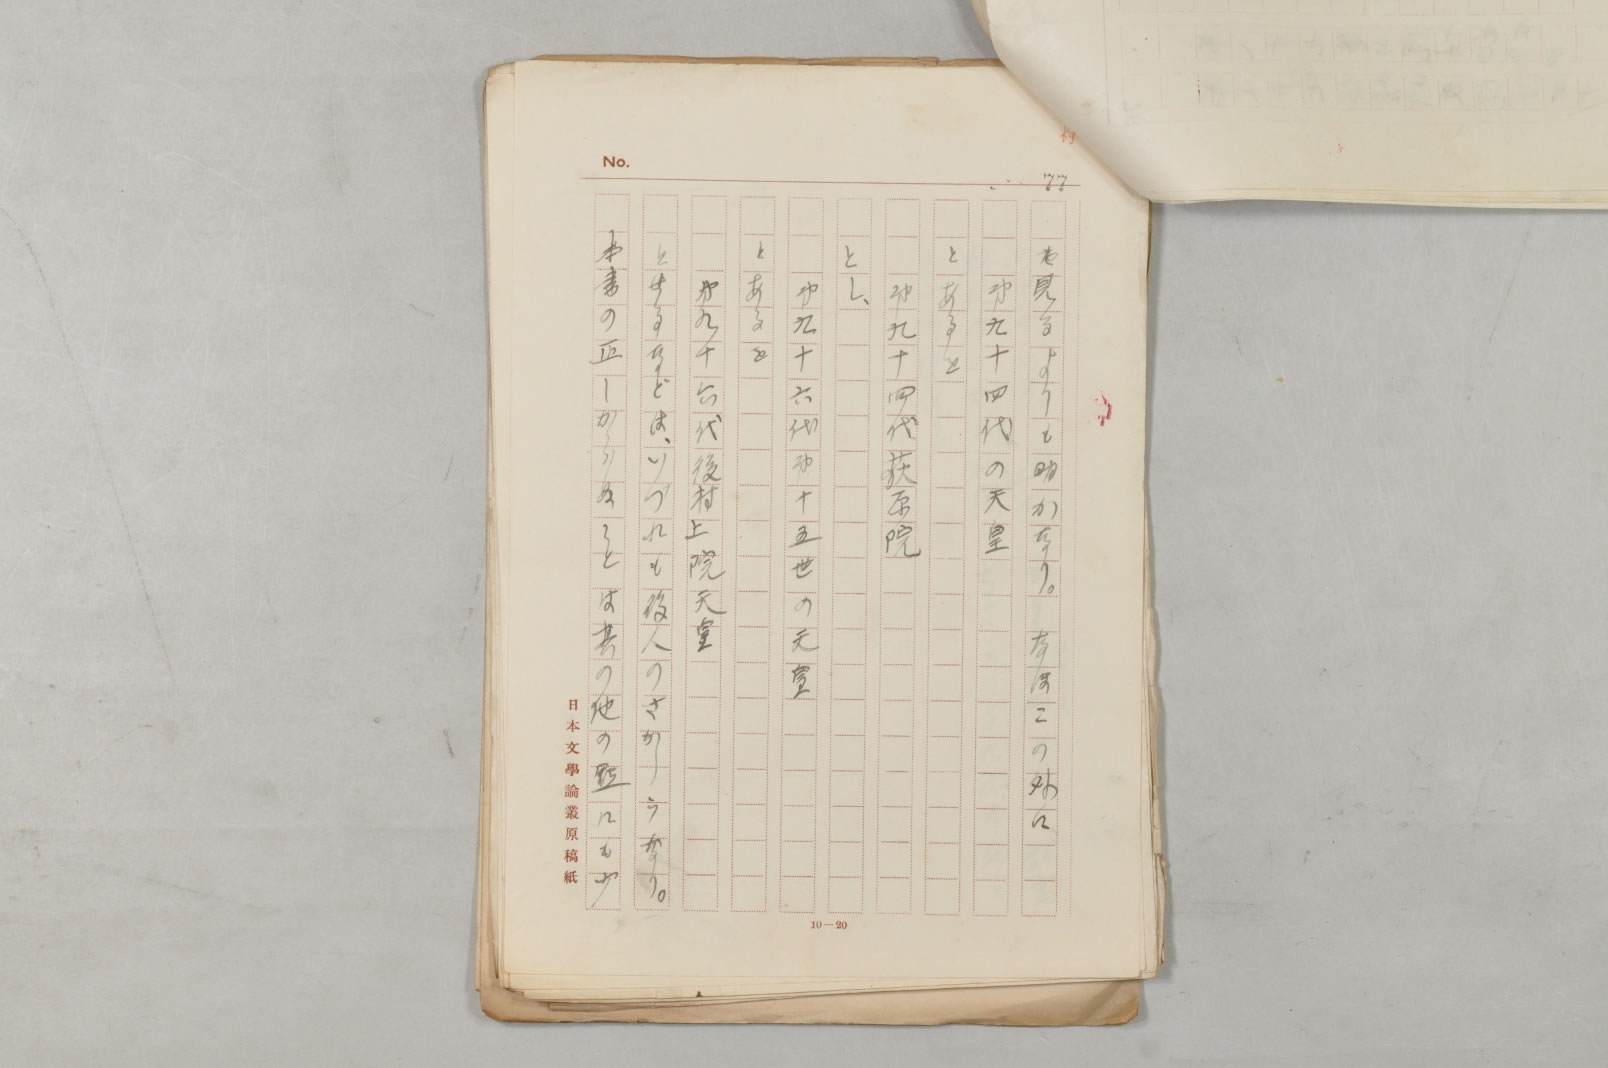 No.
を見るよりも明かなり。なほこの外に
第九十四代の天皇
とあるを
第九十四代荻原院
とし、
第九十六代第十五世の天皇
とあるを
第九十六代後村上院天皇
とするなどは、いづれも後人のさかしらなり。
本書の正しからぬことは其の他の點にも少
日本文學論叢原稿紙
10—20